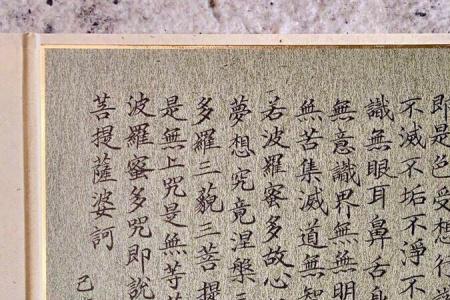 即是色受想行
不滅不垢不淨不
識無眼耳鼻舌身
無意識界無無明
無苦集滅道無智
若波羅蜜多故心
夢想究竟涅槃三
多羅三藐三菩提
是無上咒是無等
波羅蜜多咒即說
菩提薩婆訶
己